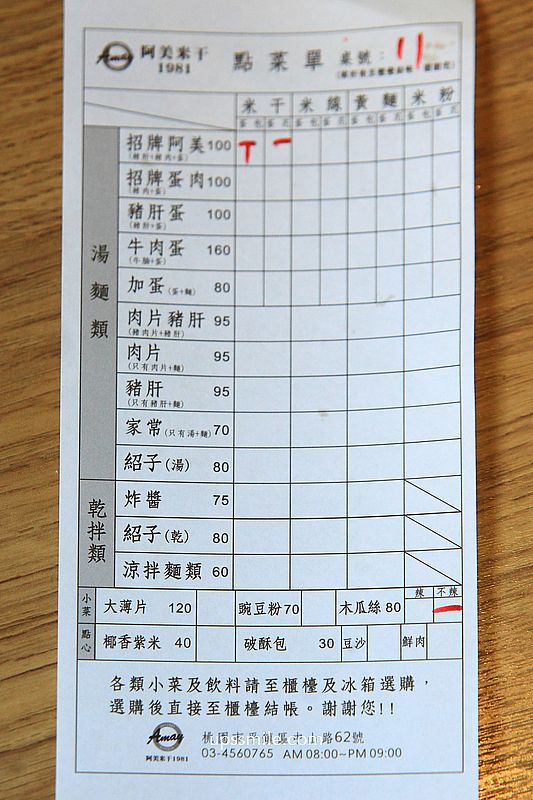 Amay 阿美米干 1981 點菜單 桌號: 11
米干 米線 黃麵 米粉
蛋包 蛋花 蛋包 蛋花 蛋包 蛋花 蛋包 蛋花
湯麵類
招牌阿美 100 T 一
(豬肝+豬肉+蛋)
招牌蛋肉 100
(豬肉+蛋)
豬肝蛋 100
(豬肝+蛋)
牛肉蛋 160
(牛腩+蛋)
加蛋 (蛋+麵) 80
肉片豬肝 95
(豬肉片+豬肝)
肉片 95
(只有肉片+麵)
豬肝 95
(只有豬肝+麵)
家常 (只有湯+麵) 70
紹子 (湯) 80
乾拌類
炸醬 75
紹子 (乾) 80
涼拌麵類 60
小菜 大薄片 120 豌豆粉 70 木瓜絲 80 辣 不辣 一
點心 椰香紫米 40 破酥包 30 豆沙 鮮肉
各類小菜及飲料請至櫃檯及冰箱選購,
選購後直接至櫃檯結帳。謝謝您!!
Amay 阿美米干1981
桃園市 路62號
upssmile.com
03-4560765 AM 08:00~PM 09:00